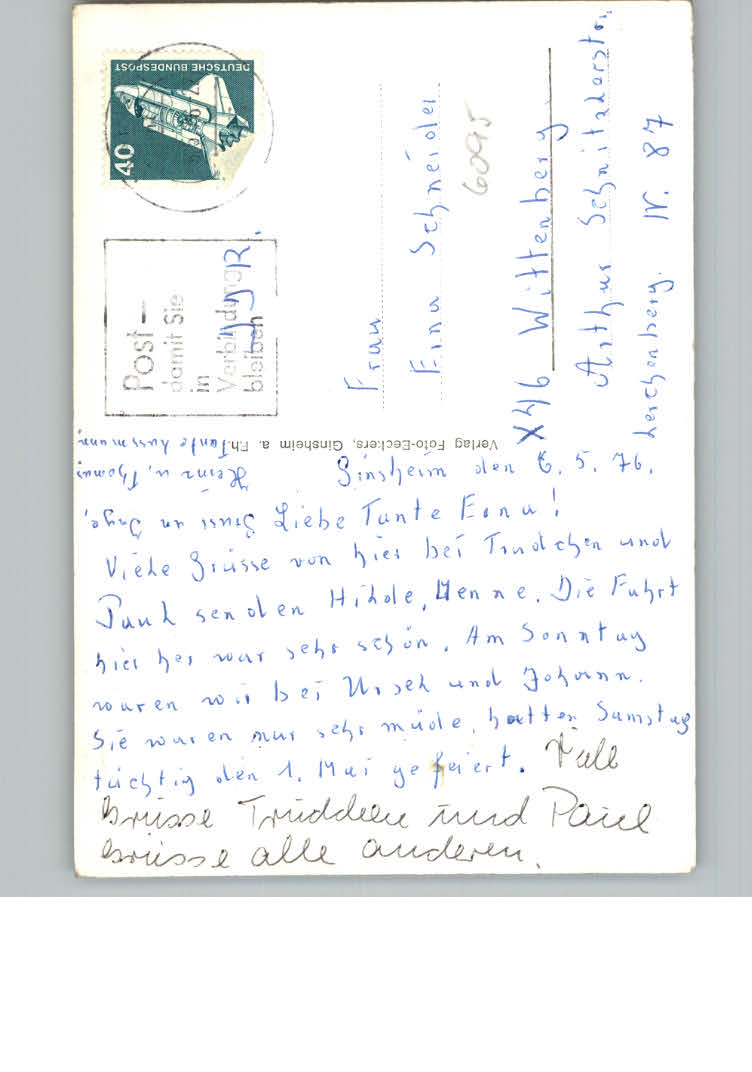 DEUTSCHE BUNDESPOST
40
Post –
damit Sie
in
Verbindung
bleiben
Frau
Erna Schneider
6095
X 46 Wittenberg
Arthur Schnitzlerstr.
Lerchenberg. Nr. 87
Verlag Foto-Eeckers, Ginsheim a. Rh.
Ginsheim den 6. 5. 76.
Liebe Tante Erna!
Viele Grüsse von hier bei Trudchen und
Paul senden Hilde, Menne. Die Fahrt
hier her war sehr schön. Am Sonntag
waren wir bei Ursel und Johann.
Sie waren nur sehr müde, hatten Samstag
tüchtig den 1. Mai gefeiert. Viele
Grüsse Truddchen und Paul
Grüsse alle anderen.
Gruss an Inge,
Heinz u. Thomas
Tante Lussmann